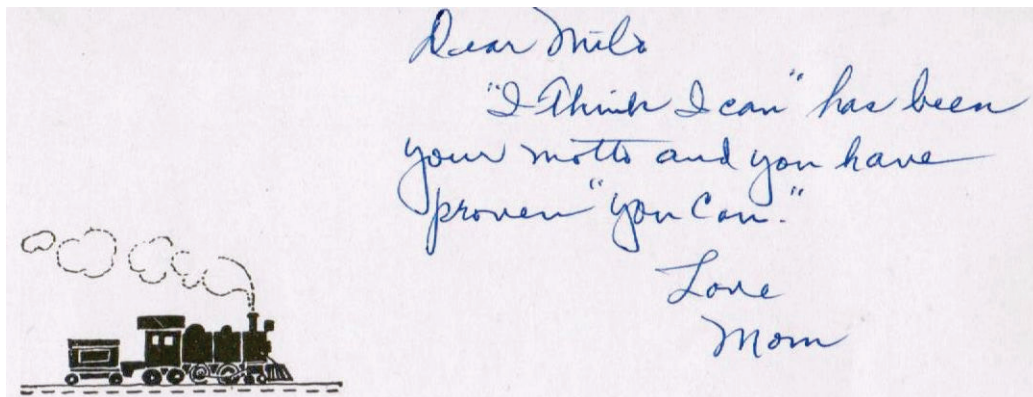 Dear Milo
"I think I can" has been
your motto and you have
proven "you can."
Love
Mom